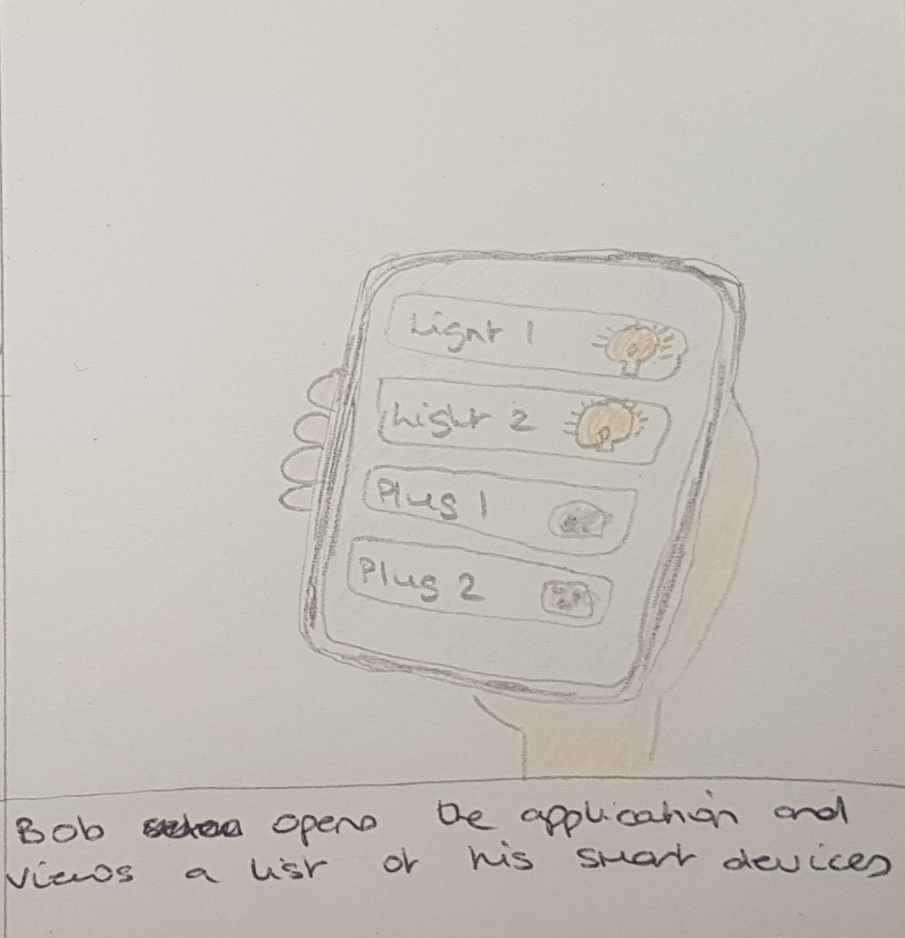 Light 1
Light 2
Plug 1
Plug 2
Bob opens the application and
views a list of his smart devices